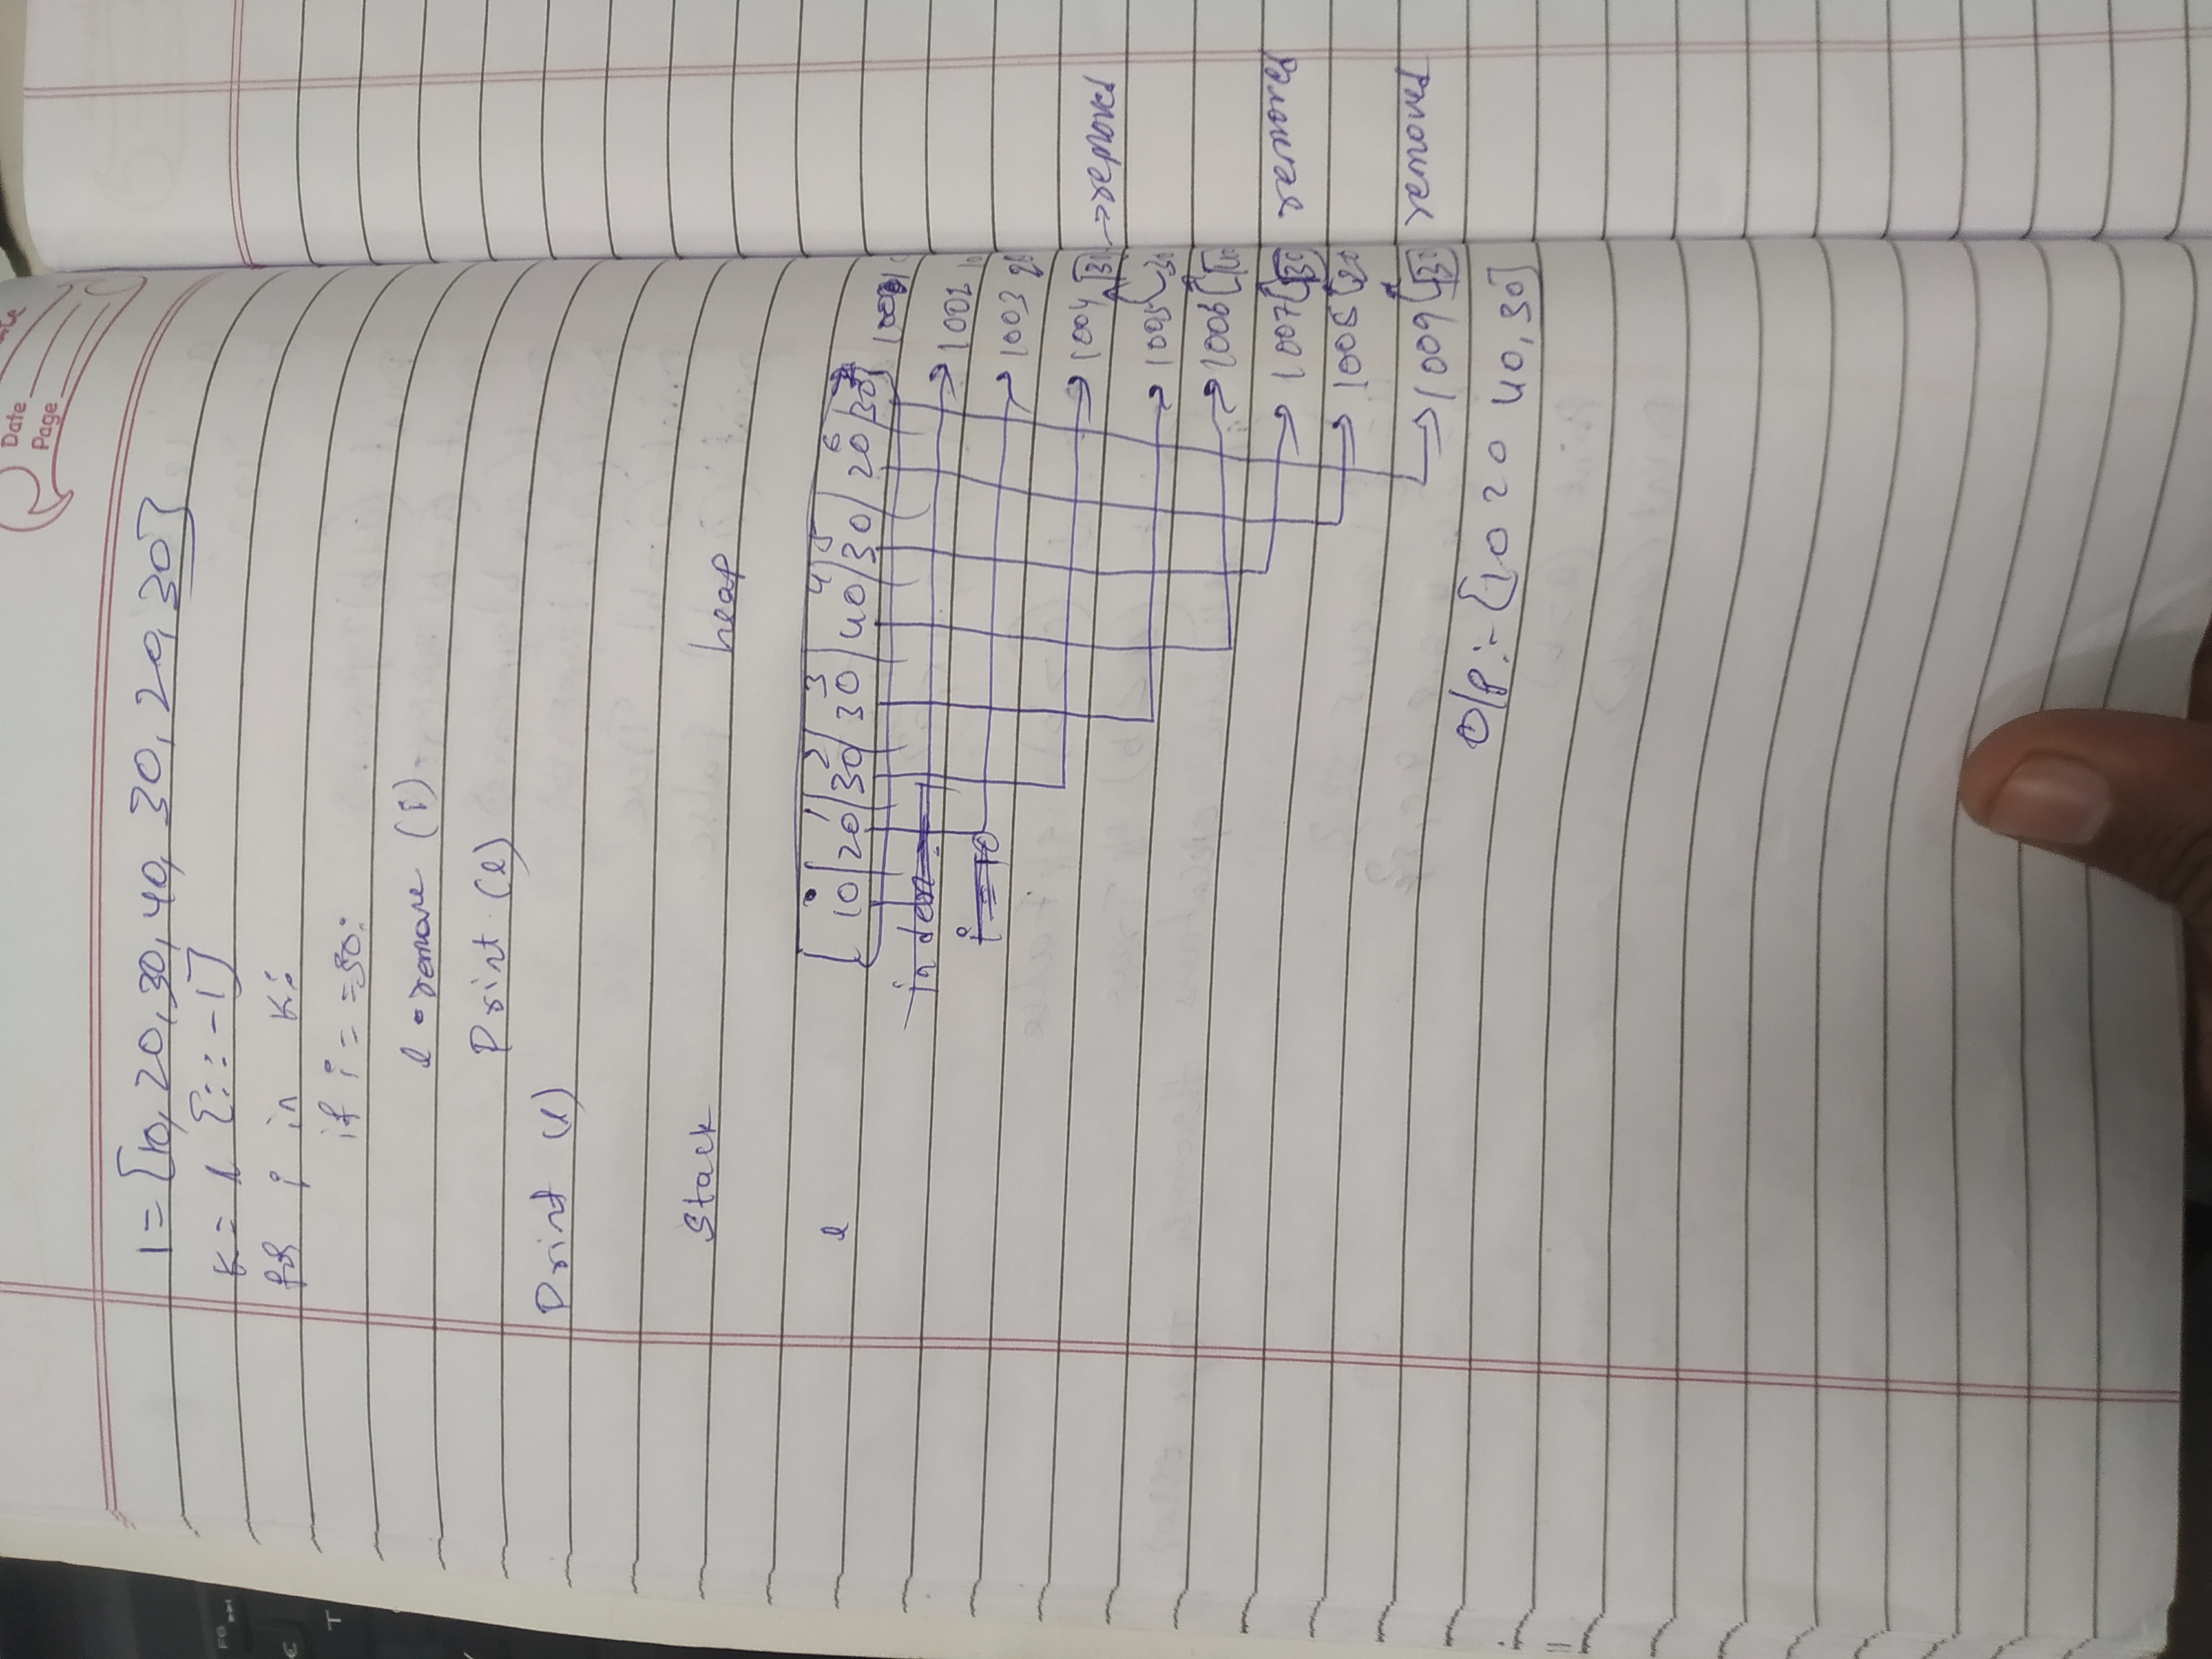 Date
Page
l = [10, 20, 30, 40, 30, 20, 30]
K = l [: : -1]
for i in K:
if i = = 30:
l . remove (i)
Print (l)
Print (l)
Stack heap
0 1 2 3 4 5 6 7
l [10 20 30 30 40 30 20 30]
index = 1 1002
i = 10 1003
1004 → removed
1005 30
1006
1007 30 removed
1008 20
1009 removed
O/P :- [10 20 40, 30]
F6
T